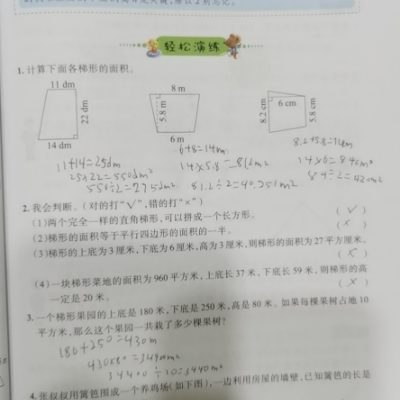 轻松演练
1.计算下面各梯形的面积。
11 dm
22 dm
14 dm
8 m
5.8 m
6 m
8.2 cm
6 cm
5.8 cm
11+14=25dm
25×22=550dm²
550÷2=275dm²
6+8=14m
14×5.8=81.2m²
8.2+5.8=14cm
14×6=84cm²
84÷2=42cm²
2.我会判断。(对的打"√",错的打"×")
(1)两个完全一样的直角梯形,可以拼成一个长方形。 (√)
(2)梯形的面积等于平行四边形的面积的一半。 (×)
(3)梯形的上底为3厘米,下底为6厘米,高为3厘米,则梯形的面积为27平方厘米。
(×)
(4)一块梯形菜地的面积为960平方米,上底长37米,下底长59米,则梯形的高
一定是20米。 (×)
3.一个梯形果园的上底是180米,下底是250米,高是80米。如果每棵果树占地10
平方米,那么这个果园一共栽了多少棵果树?
180+250=430m
4.张叔叔用篱笆围成一个养鸡场(如下图),一边利用房屋的墙壁,已知篱笆的长是